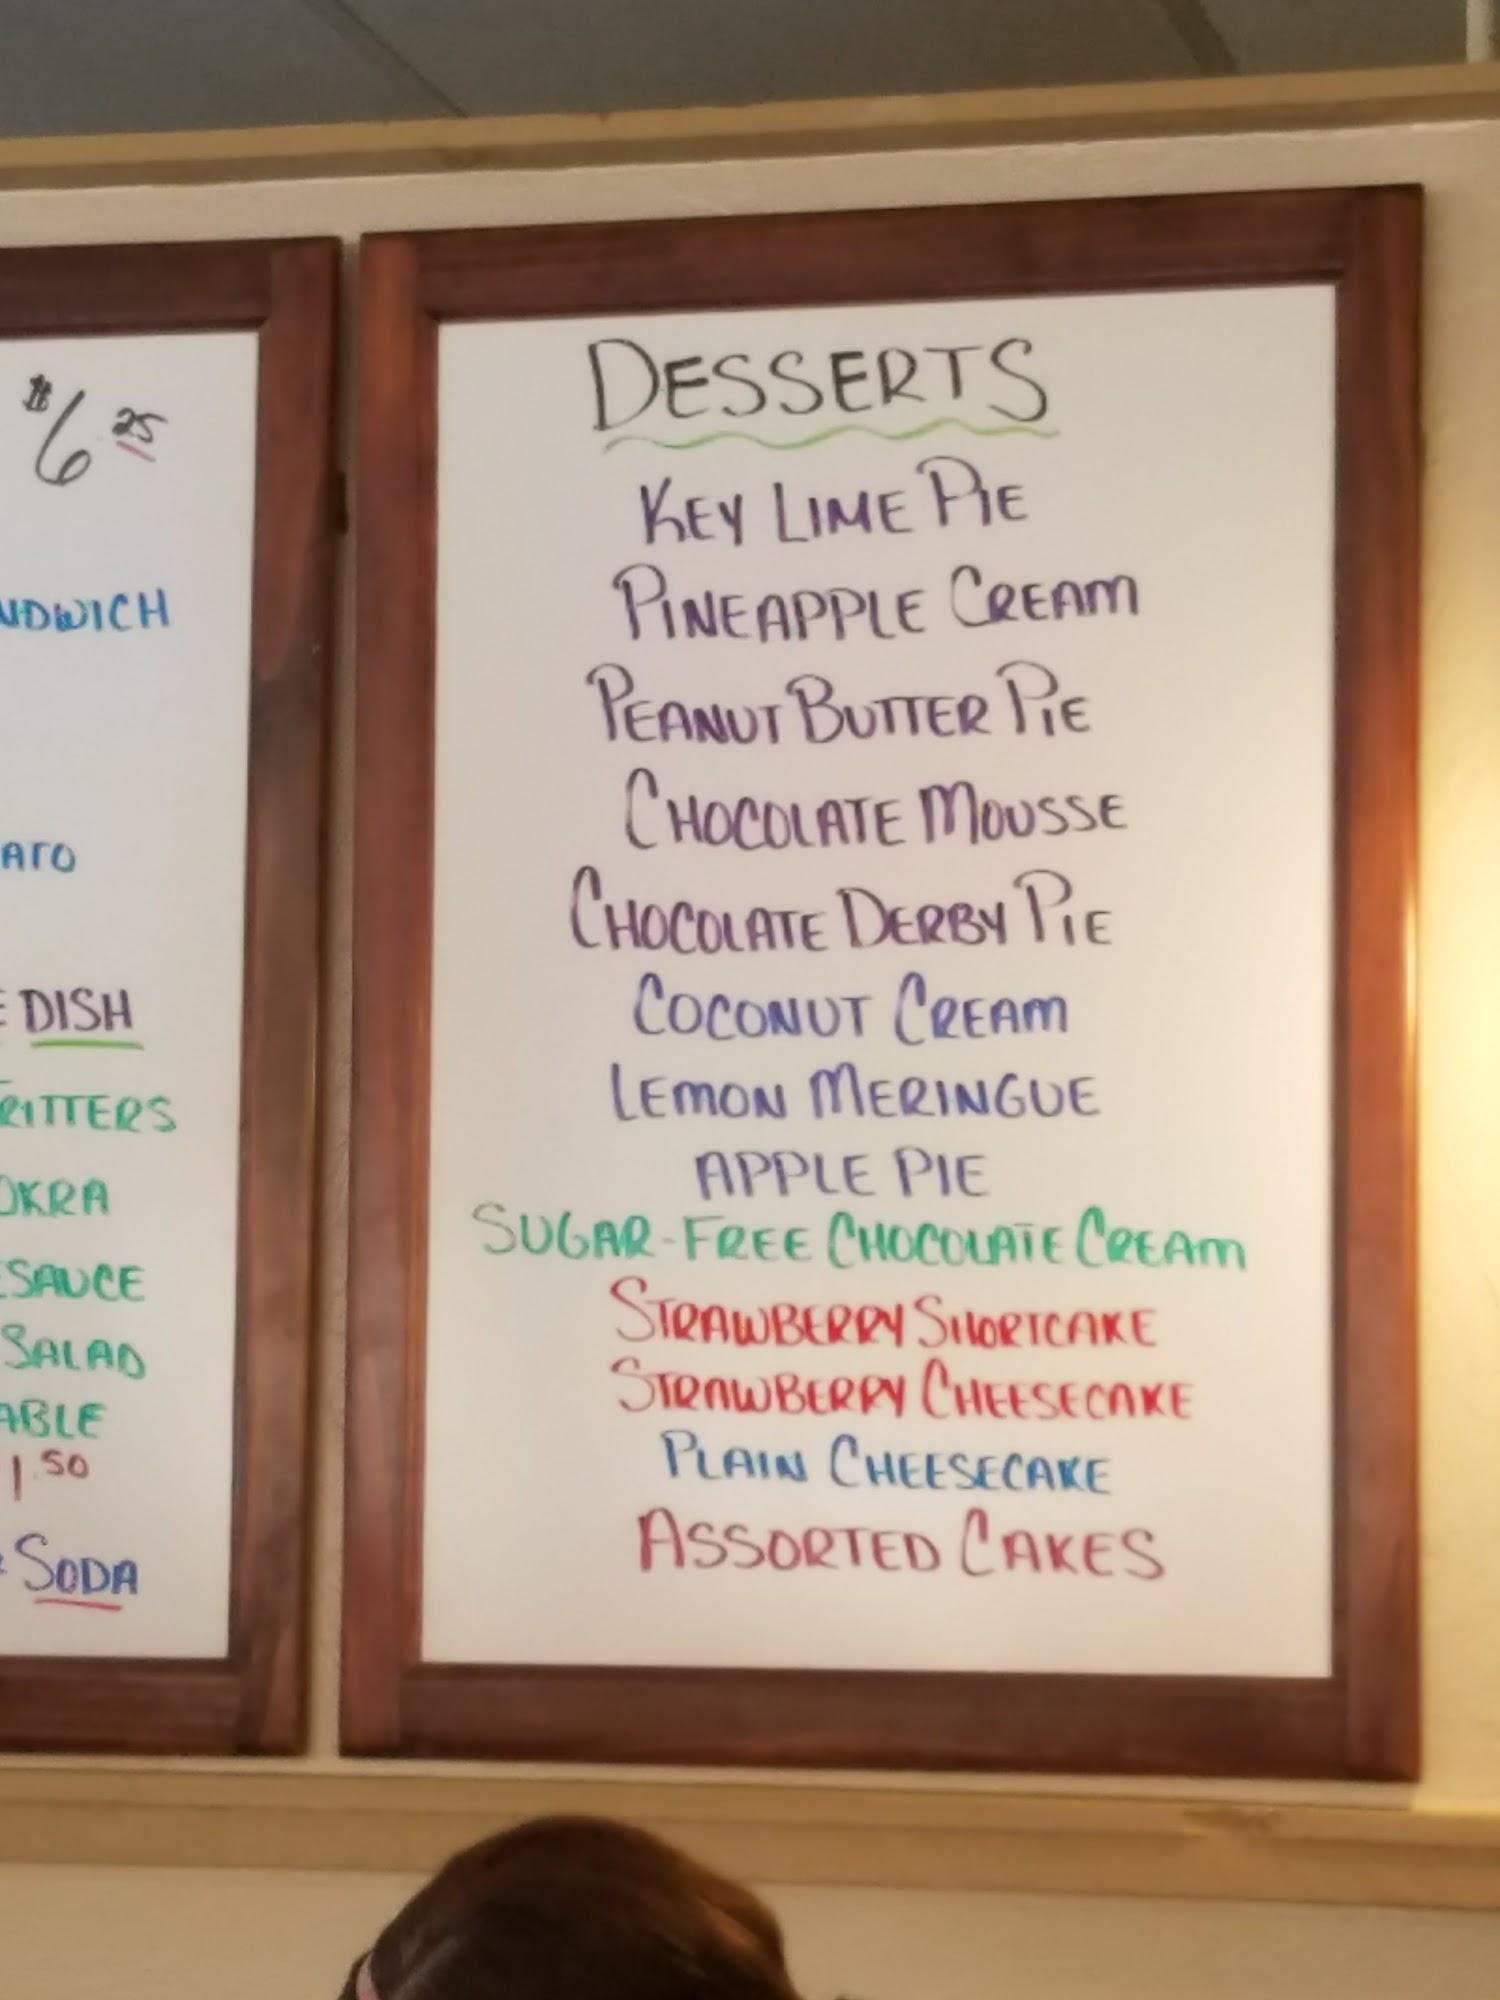 $6.25
DISH
OKRA
SALAD
1.50
SODA
DESSERTS
KEY LIME PIE
PINEAPPLE CREAM
PEANUT BUTTER PIE
CHOCOLATE MOUSSE
CHOCOLATE DERBY PIE
COCONUT CREAM
LEMON MERINGUE
APPLE PIE
SUGAR-FREE CHOCOLATE CREAM
STRAWBERRY SHORTCAKE
STRAWBERRY CHEESECAKE
PLAIN CHEESECAKE
ASSORTED CAKES